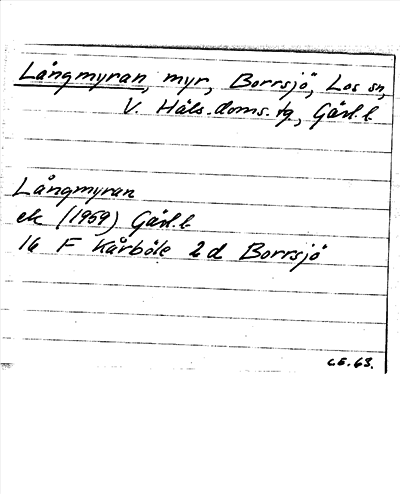 Långmyran, myr, Borrsjö, Los sn,
V. Häls. doms. tg, Gävl. l.
Långmyran
ek (1959) Gävl. l.
16 F Kårböle 2 d Borrsjö
C.E. 63.